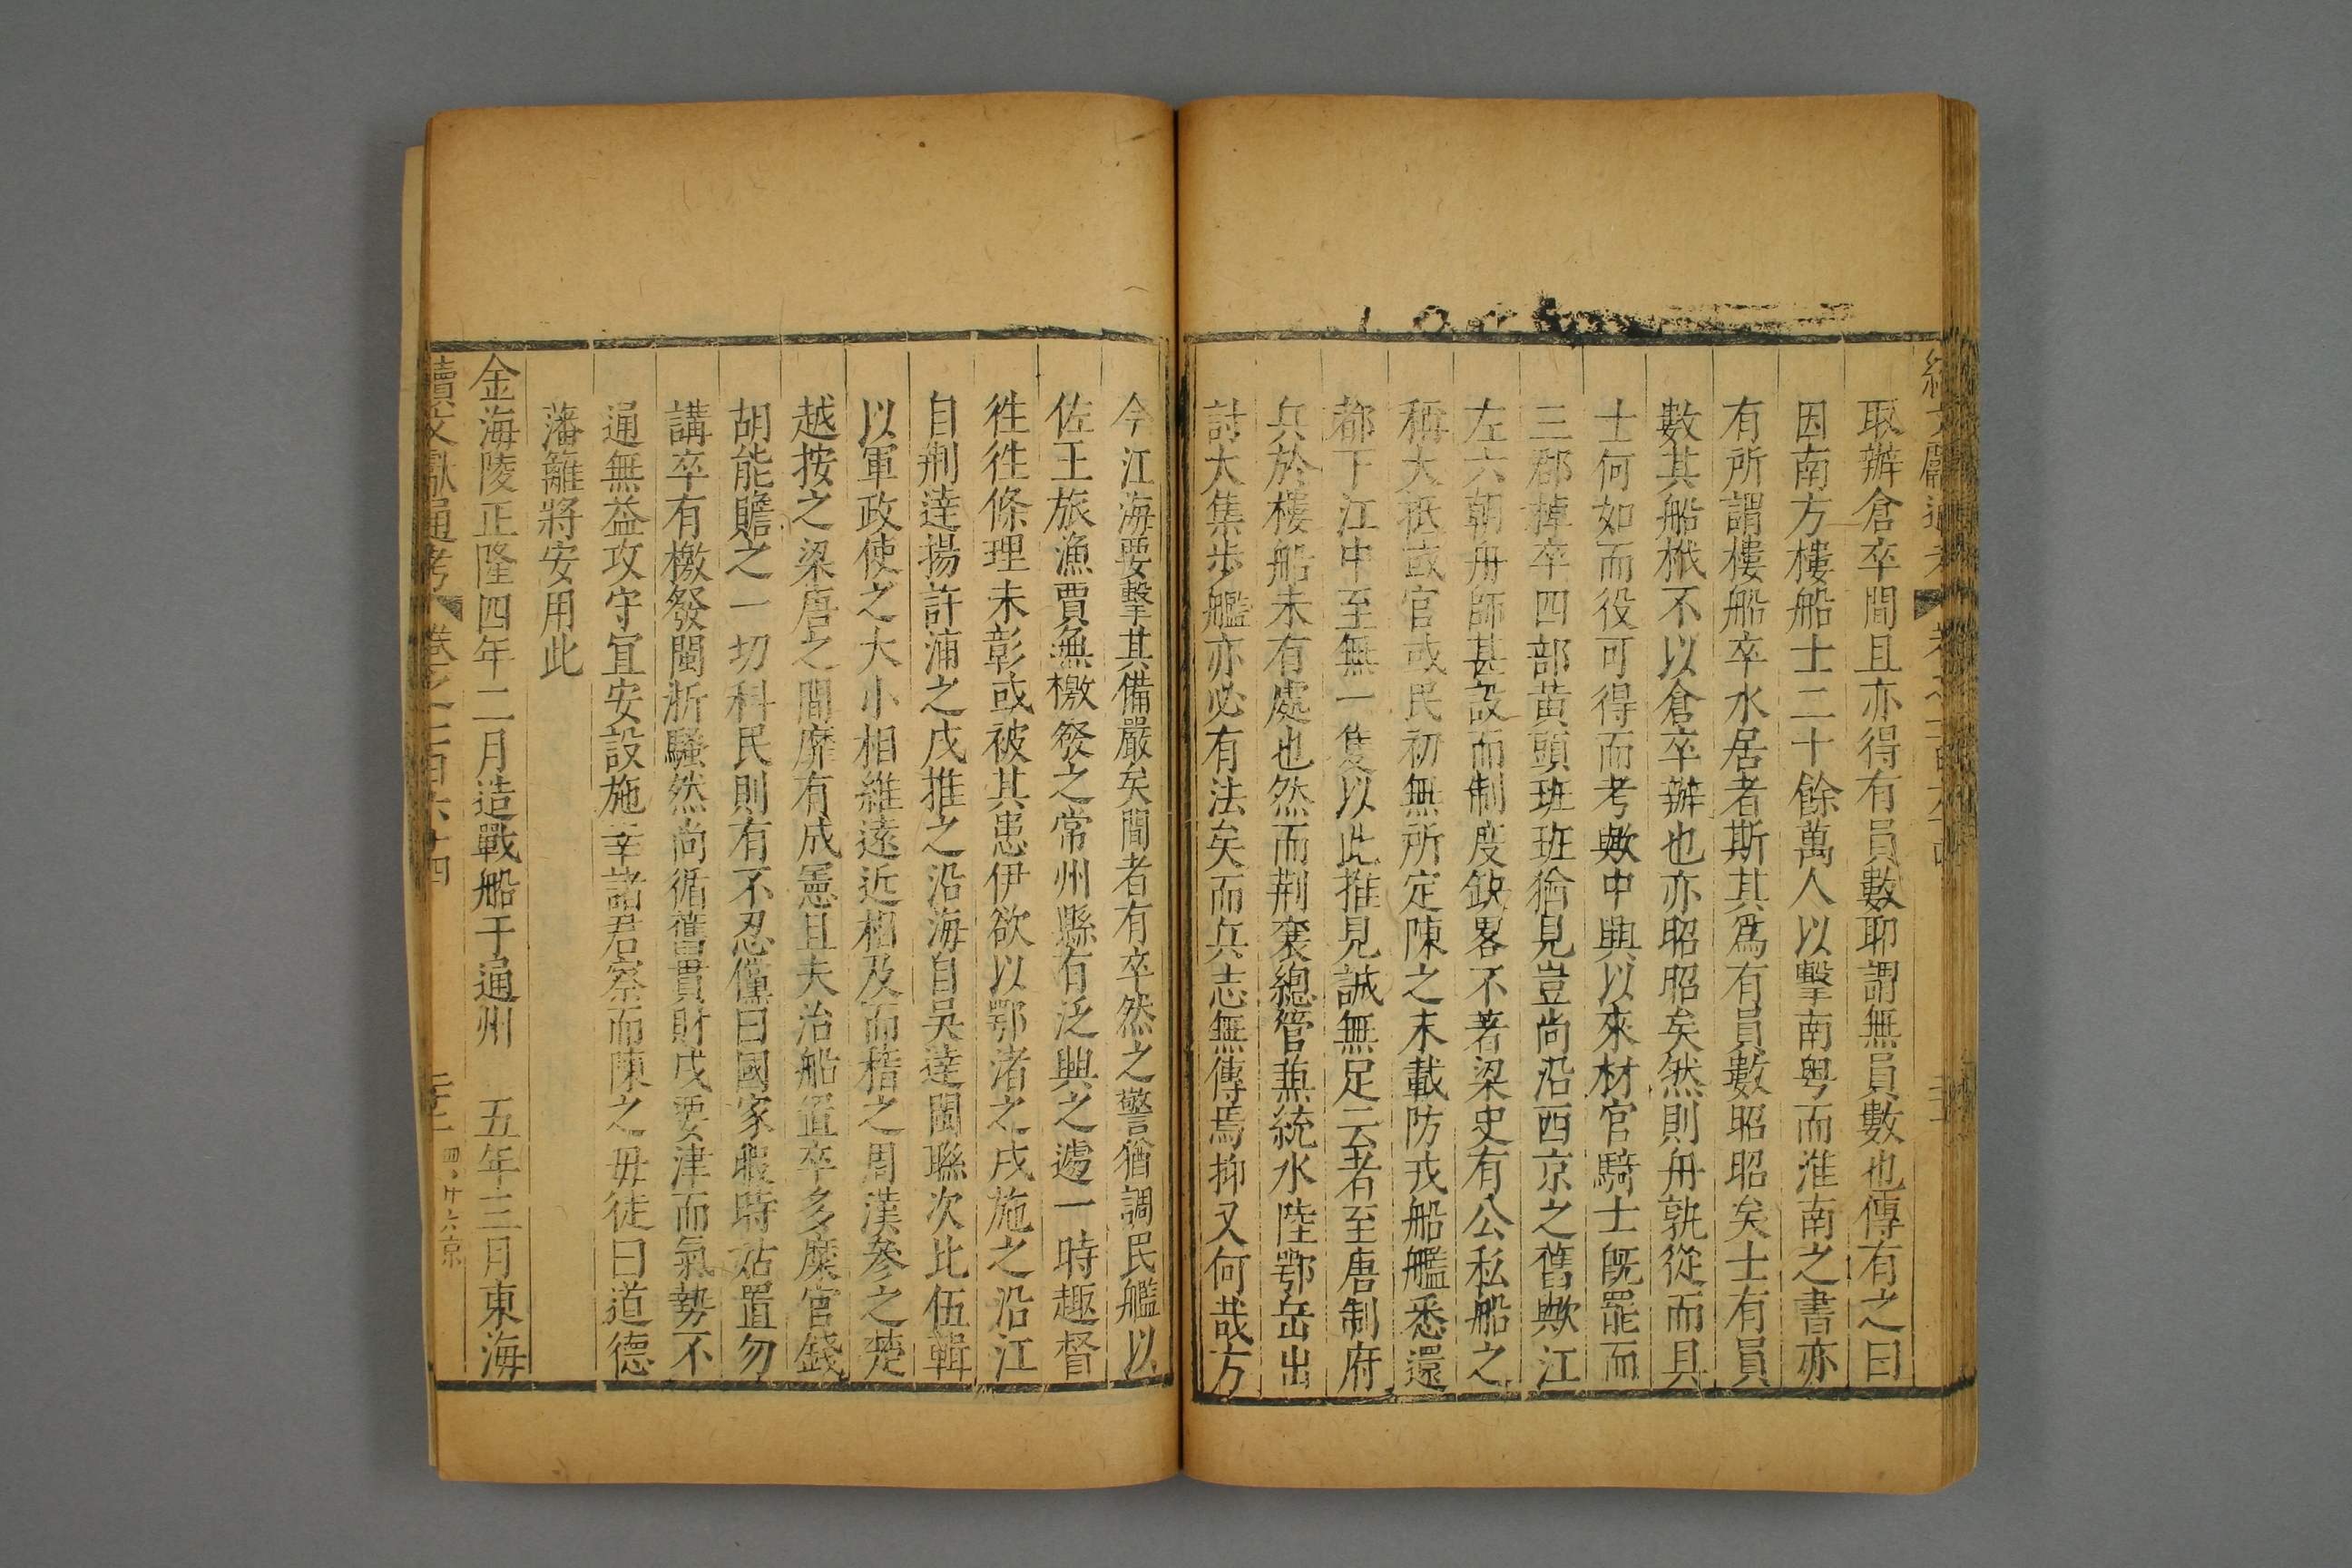 取辦倉卒間且亦得有員數耶謂無員數也傳有之曰
因南方樓船士二十餘萬人以擊南粤而淮南之書亦
有所謂樓船卒水居者斯其爲有員數昭昭矣士有員
數其船栰不以倉卒辦也亦昭昭矣然則舟孰從而具
士何如而役可得而考歟中興以來材官騎士旣罷而
三郡棹卒四部黄頭班班猶見豈尚沿西京之舊歟江
左六朝舟師甚設而制度缺畧不著梁史有公私船之
稱大抵或官或民初無所定陳之末載防戎船艦悉還
都下江中至無一隻以此推見誠無足云者至唐制府
兵於樓船未有處也然而荆襄總管兼統水陸鄂岳出
討大集步艦亦必有法矣而兵志無傳焉抑又何哉方
今江海要擊其備嚴矣間者有卒然之警猶調民艦以
佐王旅漁賈無檄發之常州縣有泛興之遽一時趣督
徃徃條理未彰或被其患伊欲以鄂渚之戍施之沿江
自荆達揚許浦之戍推之沿海自吳達閩聯次比伍輯
以軍政使之大小相維遠近相及而稽之周漢參之楚
越按之梁唐之間靡有成憲且夫治船置卒多糜官錢
胡能贍之一切科民則有不忍儻曰國家暇時姑置勿
講卒有檄發閩浙騷然尚循舊貫財戍要津而氣勢不
通無益攻守宜安設施幸諸君察而陳之毋徒曰道德
藩籬將安用此
金海陵正隆四年二月造戰船于通州　五年三月東海
續文獻通考 卷之一百六十四